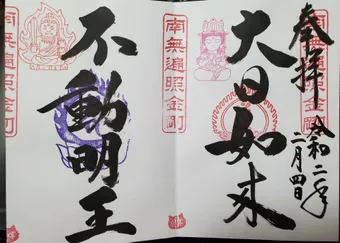 奉拝
令和二年
二月四日
大日如来
南無遍照金剛
不動明王
南無遍照金剛